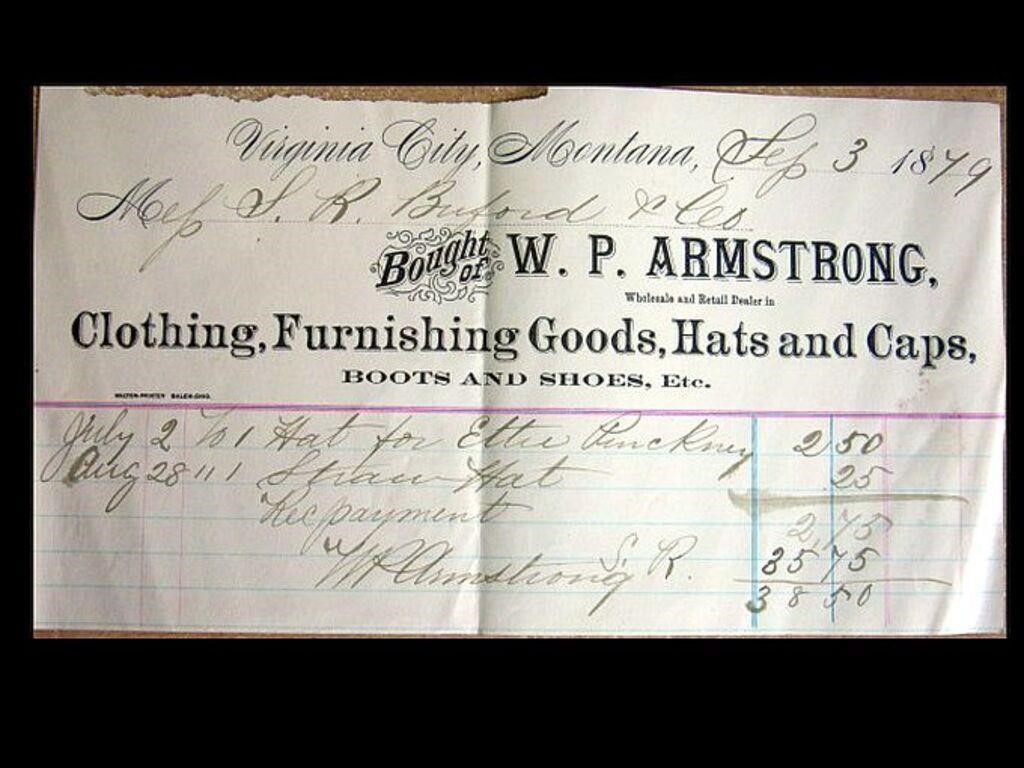 Virginia City, Montana, Sep 3 1879
Mess S. R. Buford & Co
Bought of W. P. ARMSTRONG,
Wholesale and Retail Dealer in
Clothing, Furnishing Goods, Hats and Caps,
BOOTS AND SHOES, Etc.
July 2 To 1 Hat for Ettie Pinckney 2 50
Aug 28 " 1 Straw Hat 25
Rec payment 2,75
WP Armstrong S. R. 35 75
38 50